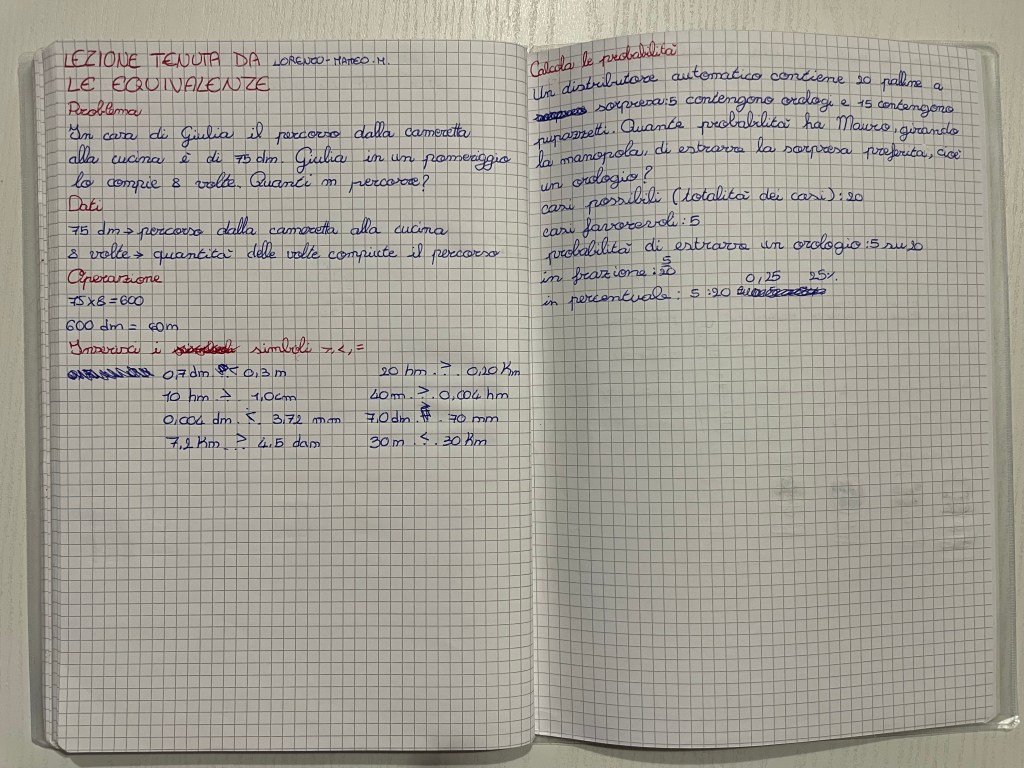 LEZIONE TENUTA DA LORENZO-MATEO.M.
LE EQUIVALENZE
Problema
In casa di Giulia il percorso dalla cameretta
alla cucina è di 75 dm. Giulia in un pomeriggio
lo compie 8 volte. Quanti m percorre?
Dati
75 dm → percorso dalla cameretta alla cucina
8 volte → quantità delle volte compiute il percorso
Operazione
75 x 8 = 600
600 dm = 60m
Inserisci i simboli >, <, =
0,7 dm < 0,3 m 20 hm > 0,20 Km
10 hm > 1,0 cm 40m > 0,004 hm
0,004 dm < 3,72 mm 7,0 dm > 70 mm
7,2 Km > 4,5 dam 30 m < 30 Km
Calcola le probabilità
Un distributore automatico contiene 20 palline a
sorpresa: 5 contengono orologi e 15 contengono
pupazzetti. Quante probabilità ha Mauro, girando
la manopola, di estrarre la sorpresa preferita, cioè
un orologio?
casi possibili (totalità dei casi): 20
casi favorevoli: 5
probabilità di estrarre un orologio: 5 su 20
in frazione: 5/20
in percentuale: 5:20 0,25 25%